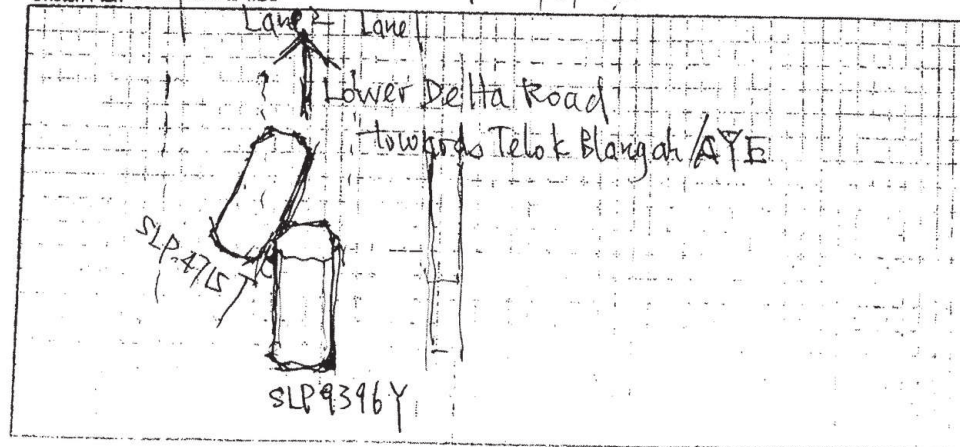 Lane 2 Lane 1
Lower Delta Road
towards Telok Blangah/AYE
SLP 4715 T
SLP9396Y